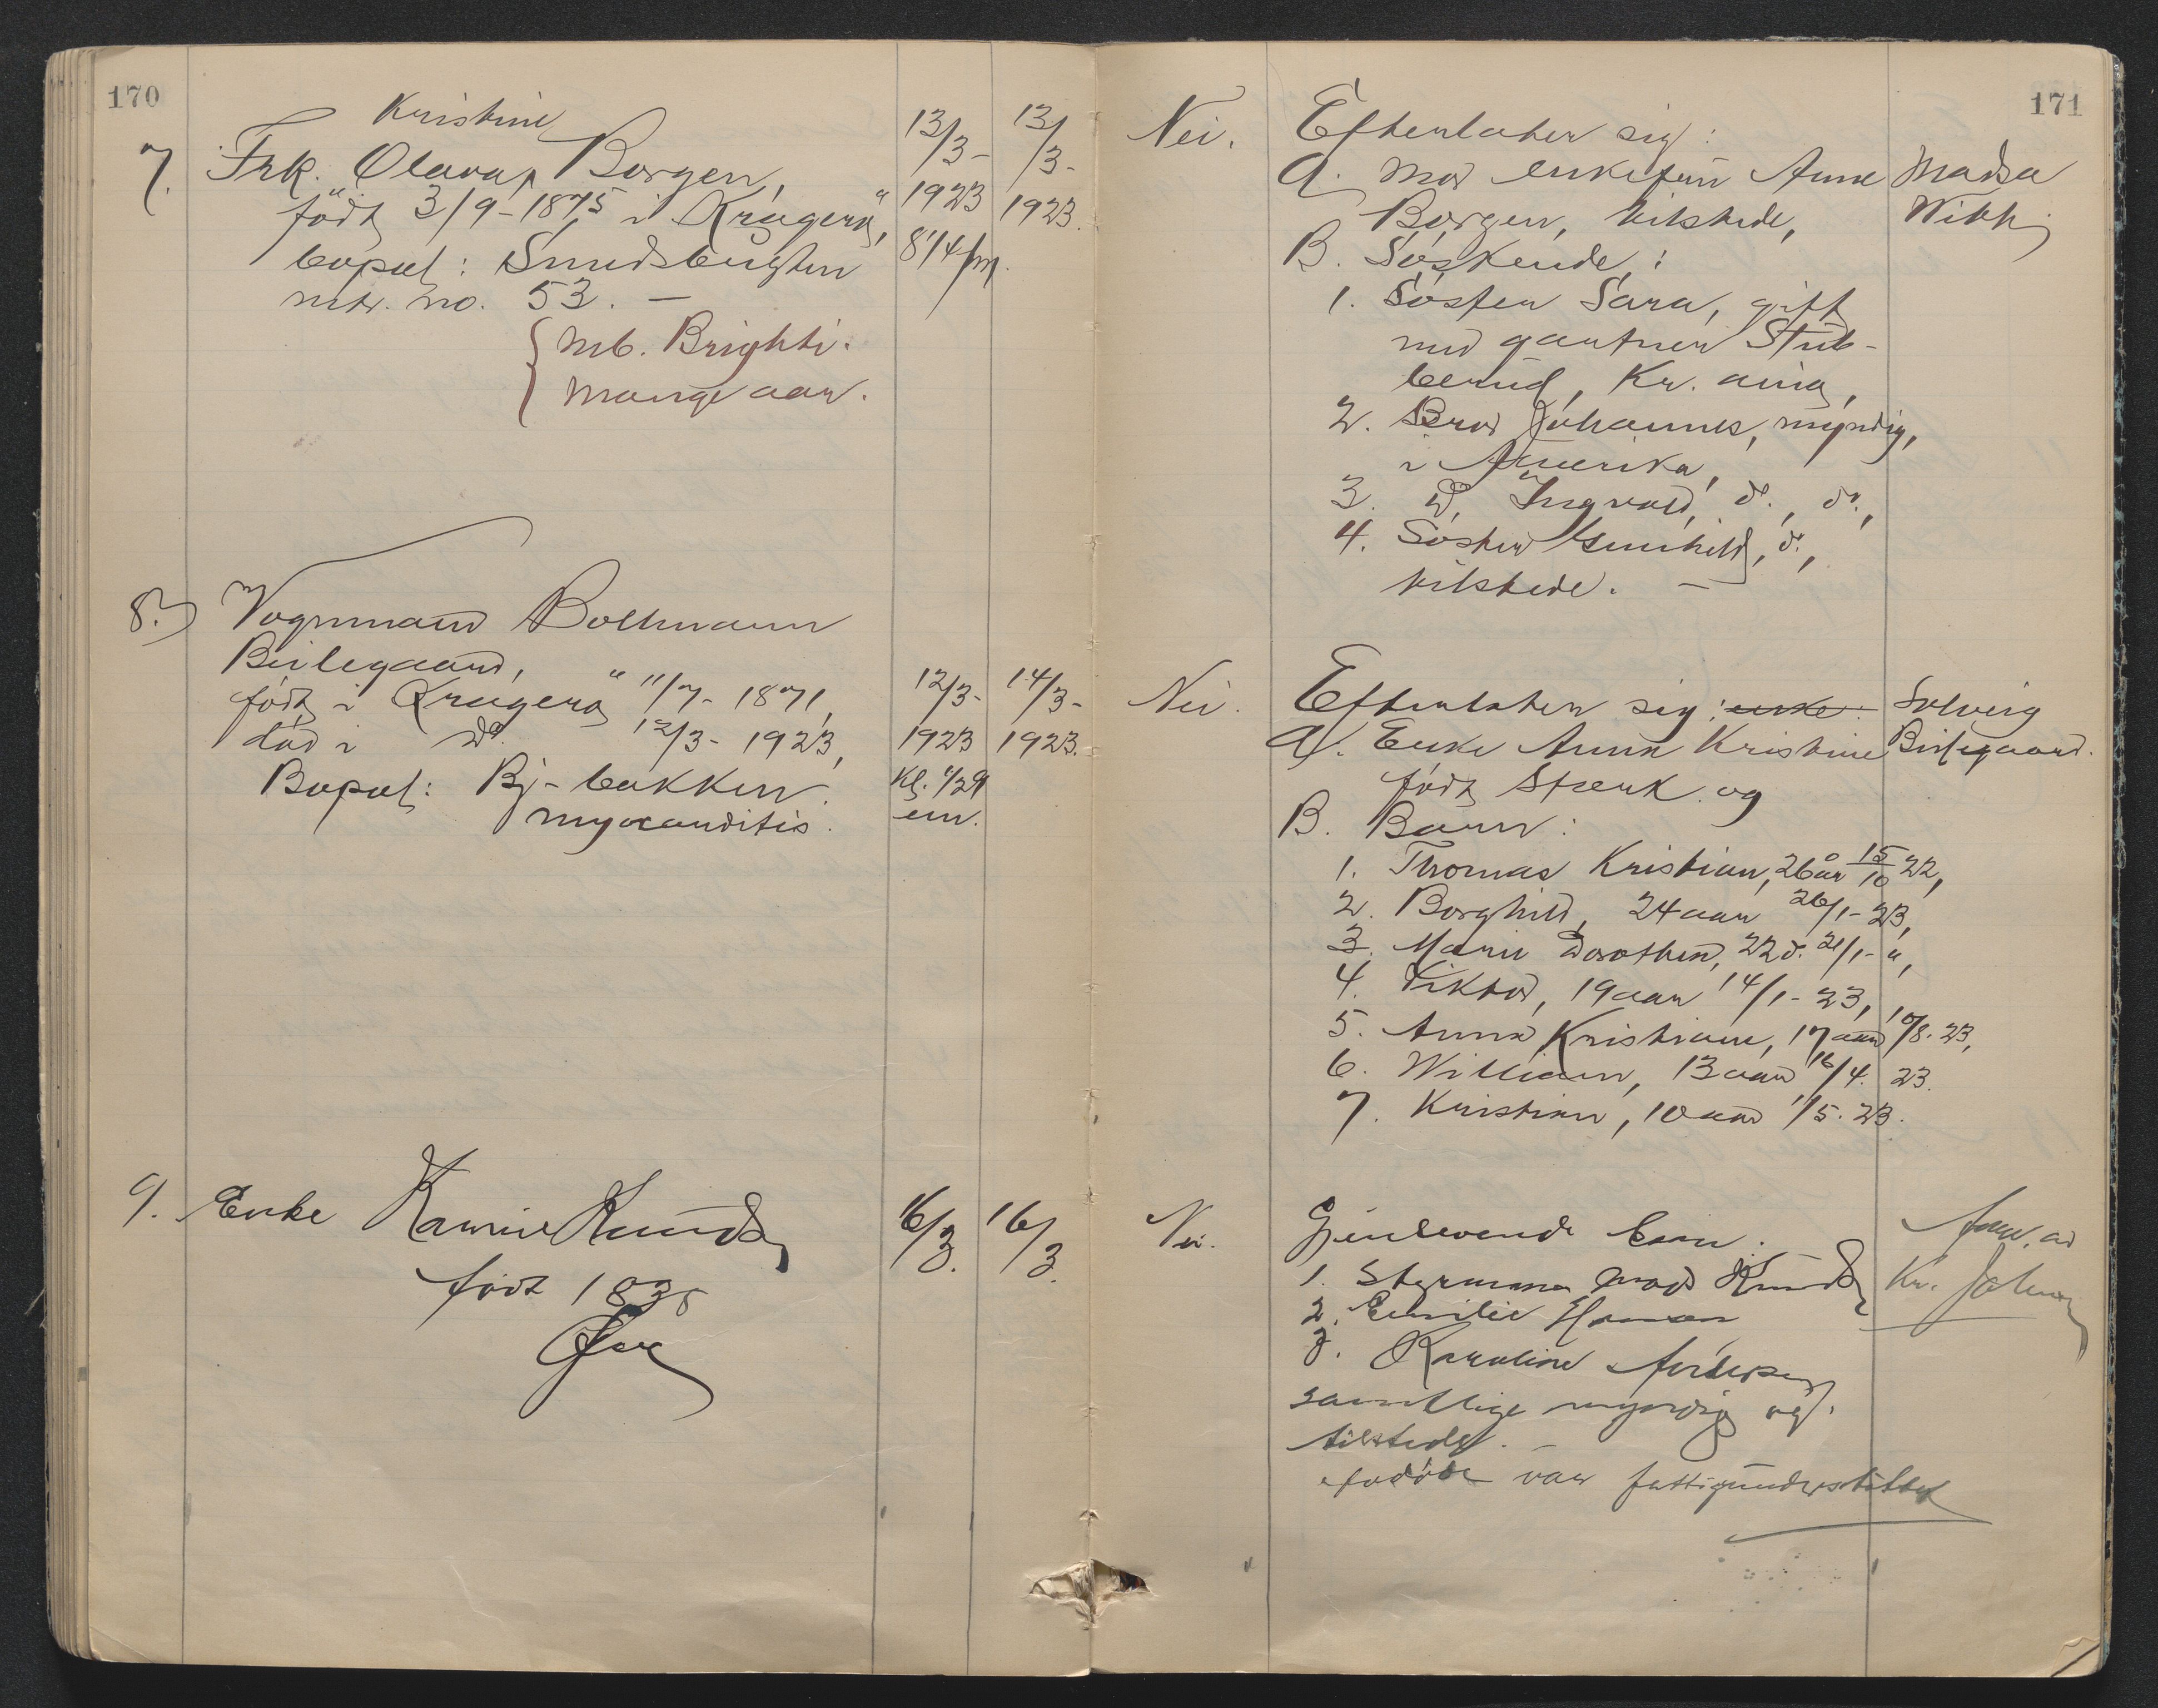 170
Kristine
7. Frk. Olava Borgen,
født 3/9-1875 i Kragerø,
bopæl: Smedsbugten
mtr. no. 53. —
mb. Brighti.
Mange aar.
13/3-
1923
8 1/4 fm.
13/3-
1923.
8. Vognmand Bollmann
Beilegaard,
født i Kragerø 11/7- 1871,
død i do. 12/3- 1923,
Bopæl: Bj-bakken.
myocarditis.
12/3-
1923
Kl.
em.
14/3-
1923.
9. Enke Karine Knudsen
født 1835
16/3.
16/3.
171
Nei.
Efterlater sig:
A. Mor enkefru Anne
Borgen, tilstede,
B. Søskende:
1. Søster Sara, gift
med gartner Stub-
berud, Kr. ania,
2. Bror Johannes, myndig,
i Amerika,
3. do. Ingvald, do., do.,
4. Søster Gunhild, do.,
tilstede. —
Madsa
Nei.
Efterlater sig: enke:
A. Enke Anna Kristine
født Stærk og
B. Barn:
1. Thomas Kristian, 26 år 15/10 22,
2. Borghild, 24 aar 26/1- 23,
3. Marie Dorothea, 22 d. 21/1- ",
4. Viktor, 19 aar 14/1- 23,
5. Anna Kristiane, 17 aar 10/8. 23,
6. William, 13 aar 16/4. 23.
7. Kristian, 10 aar 1/5. 23.
Solveig
Beilegaard.
Nei.
Gjenlevende barn:
1. Styrmann Mads Knudsen
2. Emilie Hansen
3. Karoline
samtlige myndig og
tilstede. —
afdøde var fattigunderstøttet
Kr. Johnsen